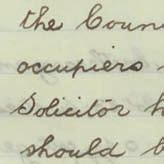 the Coun
occupiers
Solicitor h
should b